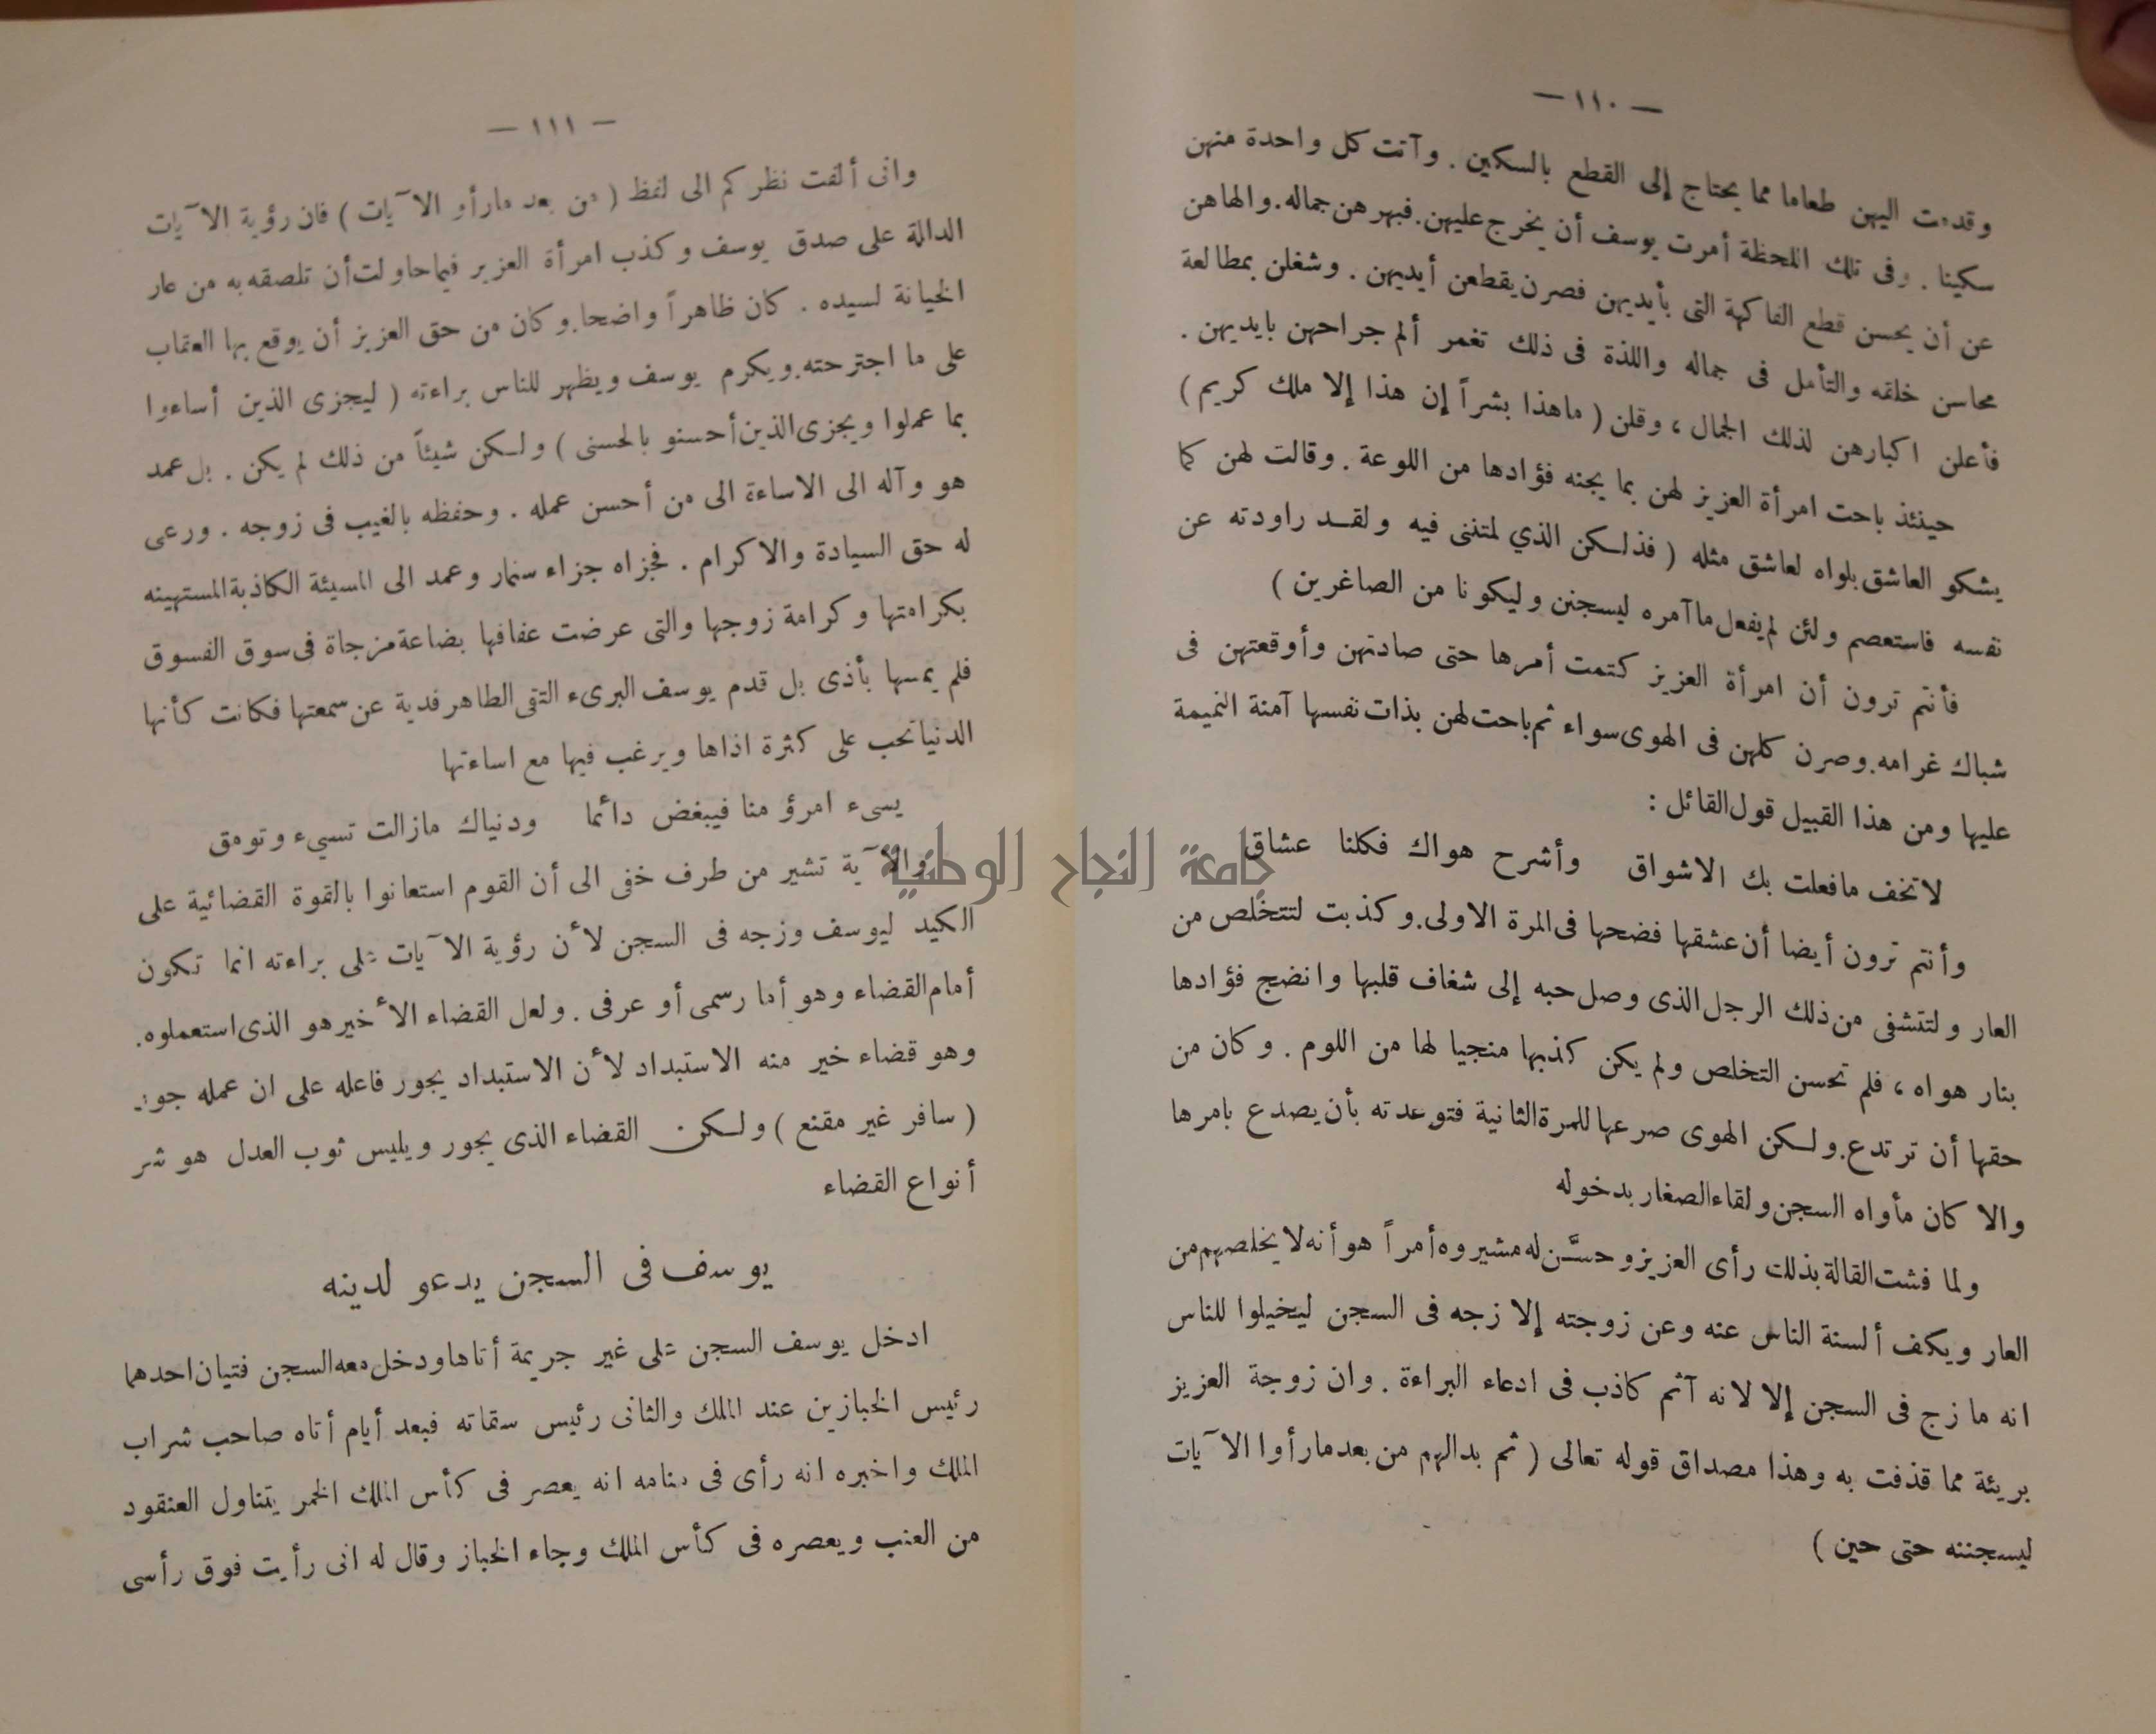 — ١١٠ —
وقدمت اليهن طعاما مما يحتاج إلى القطع بالسكين . وآتت كل واحدة منهن
سكينا . وفى تلك اللحظة أمرت يوسف أن يخرج عليهن. فبهرهن جماله. والهاهن
عن أن يحسن قطع الفاكهة التى بأيديهن فصرن يقطعن أيديهن . وشغلن بمطالعة
محاسن خلقه والتأمل فى جماله واللذة فى ذلك تغمر ألم جراحهن بايديهن .
فأعلن اكبارهن لذلك الجمال ، وقلن ( ماهذا بشراً إن هذا إلا ملك كريم )
حينئذ باحت امرأة العزيز لهن بما يجنه فؤادها من اللوعة . وقالت لهن كما
يشكو العاشق بلواه لعاشق مثله ( فذلكن الذي لمتننى فيه ولقد راودته عن
نفسه فاستعصم ولئن لم يفعل ماآمره ليسجنن وليكونا من الصاغرين )
فأنتم ترون أن امرأة العزيز كتمت أمرها حتى صادتهن وأوقعتهن فى
شباك غرامه. وصرن كلهن فى الهوى سواء ثم باحت لهن بذات نفسها آمنة النميمة
عليها ومن هذا القبيل قول القائل :
لاتخف مافعلت بك الاشواق وأشرح هواك فكلنا عشاق
وأنتم ترون أيضا أن عشقها فضحها فى المرة الاولى. وكذبت لتتخلص من
العار ولتتشفى من ذلك الرجل الذى وصل حبه إلى شغاف قلبها وانضج فؤادها
بنار هواه ، فلم تحسن التخلص ولم يكن كذبها منجيا لها من اللوم . وكان من
حقها أن ترتدع. ولكن الهوى صرعها للمرة الثانية فتوعدته بأن يصدع بامرها
والا كان مأواه السجن ولقاء الصغار بدخوله
ولما فشت القالة بذلك رأى العزيز وحسَّن له مشيروه أمراً هو أنه لا يخلصهم من
العار ويكف ألسنة الناس عنه وعن زوجته إلا زجه فى السجن ليخيلوا للناس
انه ما زج فى السجن إلا لانه آثم كاذب فى ادعاء البراءة . وان زوجة العزيز
بريئة مما قذفت به وهذا مصداق قوله تعالى ( ثم بدالهم من بعد مارأوا الآيات
ليسجننه حتى حين )
— ١١١ —
وانى ألفت نظركم الى لفظ ( من بعد مارأو الآيات ) فان رؤية الآيات
الدالة على صدق يوسف وكذب امرأة العزيز فيما حاولت أن تلصقه به من عار
الخيانة لسيده . كان ظاهراً واضحا. وكان من حق العزيز أن يوقع بها العقاب
على ما اجترحته. ويكرم يوسف ويظهر للناس براءته ( ليجزى الذين أساءوا
بما عملوا ويجزى الذين أحسنو بالحسنى ) ولكن شيئاً من ذلك لم يكن . بل عمد
هو وآله الى الاساءة الى من أحسن عمله . وحفظه بالغيب فى زوجه . ورعى
له حق السيادة والاكرام . فجزاه جزاء سنمار وعمد الى المسيئة الكاذبة المستهينه
بكرامتها وكرامة زوجها والتى عرضت عفافها بضاعة مزجاة فى سوق الفسوق
فلم يمسها بأذى بل قدم يوسف البرىء التقى الطاهر فدية عن سمعتها فكانت كأنها
الدنيا تحب على كثرة اذاها ويرغب فيها مع اساءتها
يسىء امرؤ منا فيبغض دائما ودنياك مازالت تسيء وتومق
والآية تشير من طرف خفى الى أن القوم استعانوا بالقوة القضائية على
الكيد ليوسف وزجه فى السجن لأن رؤية الآيات على براءته انما تكون
أمام القضاء وهو أما رسمى أو عرفى . ولعل القضاء الأخير هو الذى استعملوه.
وهو قضاء خير منه الاستبداد لأن الاستبداد يجور فاعله على ان عمله جور
( سافر غير مقنع ) ولكن القضاء الذى يجور ويلبس ثوب العدل هو شر
أنواع القضاء
يوسف فى السجن يدعو لدينه
ادخل يوسف السجن على غير جريمة أتاها ودخل معه السجن فتيان احدهما
رئيس الخبازين عند الملك والثانى رئيس سقاته فبعد أيام أتاه صاحب شراب
الملك واخبره انه رأى فى منامه انه يعصر فى كأس الملك الخمر يتناول العنقود
من العنب ويعصره فى كأس الملك وجاء الخباز وقال له انى رأيت فوق رأسى
جامعة النجاح الوطنية